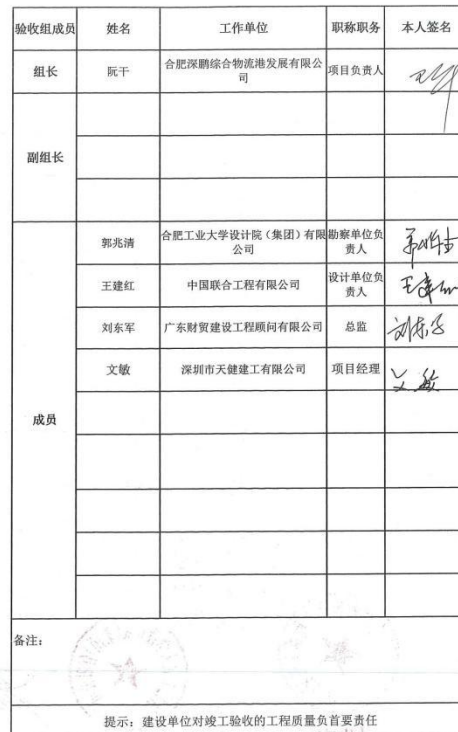 验收组成员 姓名 工作单位 职称职务 本人签名
组长 阮干 合肥深鹏综合物流港发展有限公
司 项目负责人
副组长
郭兆清 合肥工业大学设计院（集团）有限
公司 勘察单位负
责人
王建红 中国联合工程有限公司 设计单位负
责人
刘东军 广东财贸建设工程顾问有限公司 总监
文敏 深圳市天健建工有限公司 项目经理 文敏
成员
备注：
提示：建设单位对竣工验收的工程质量负首要责任